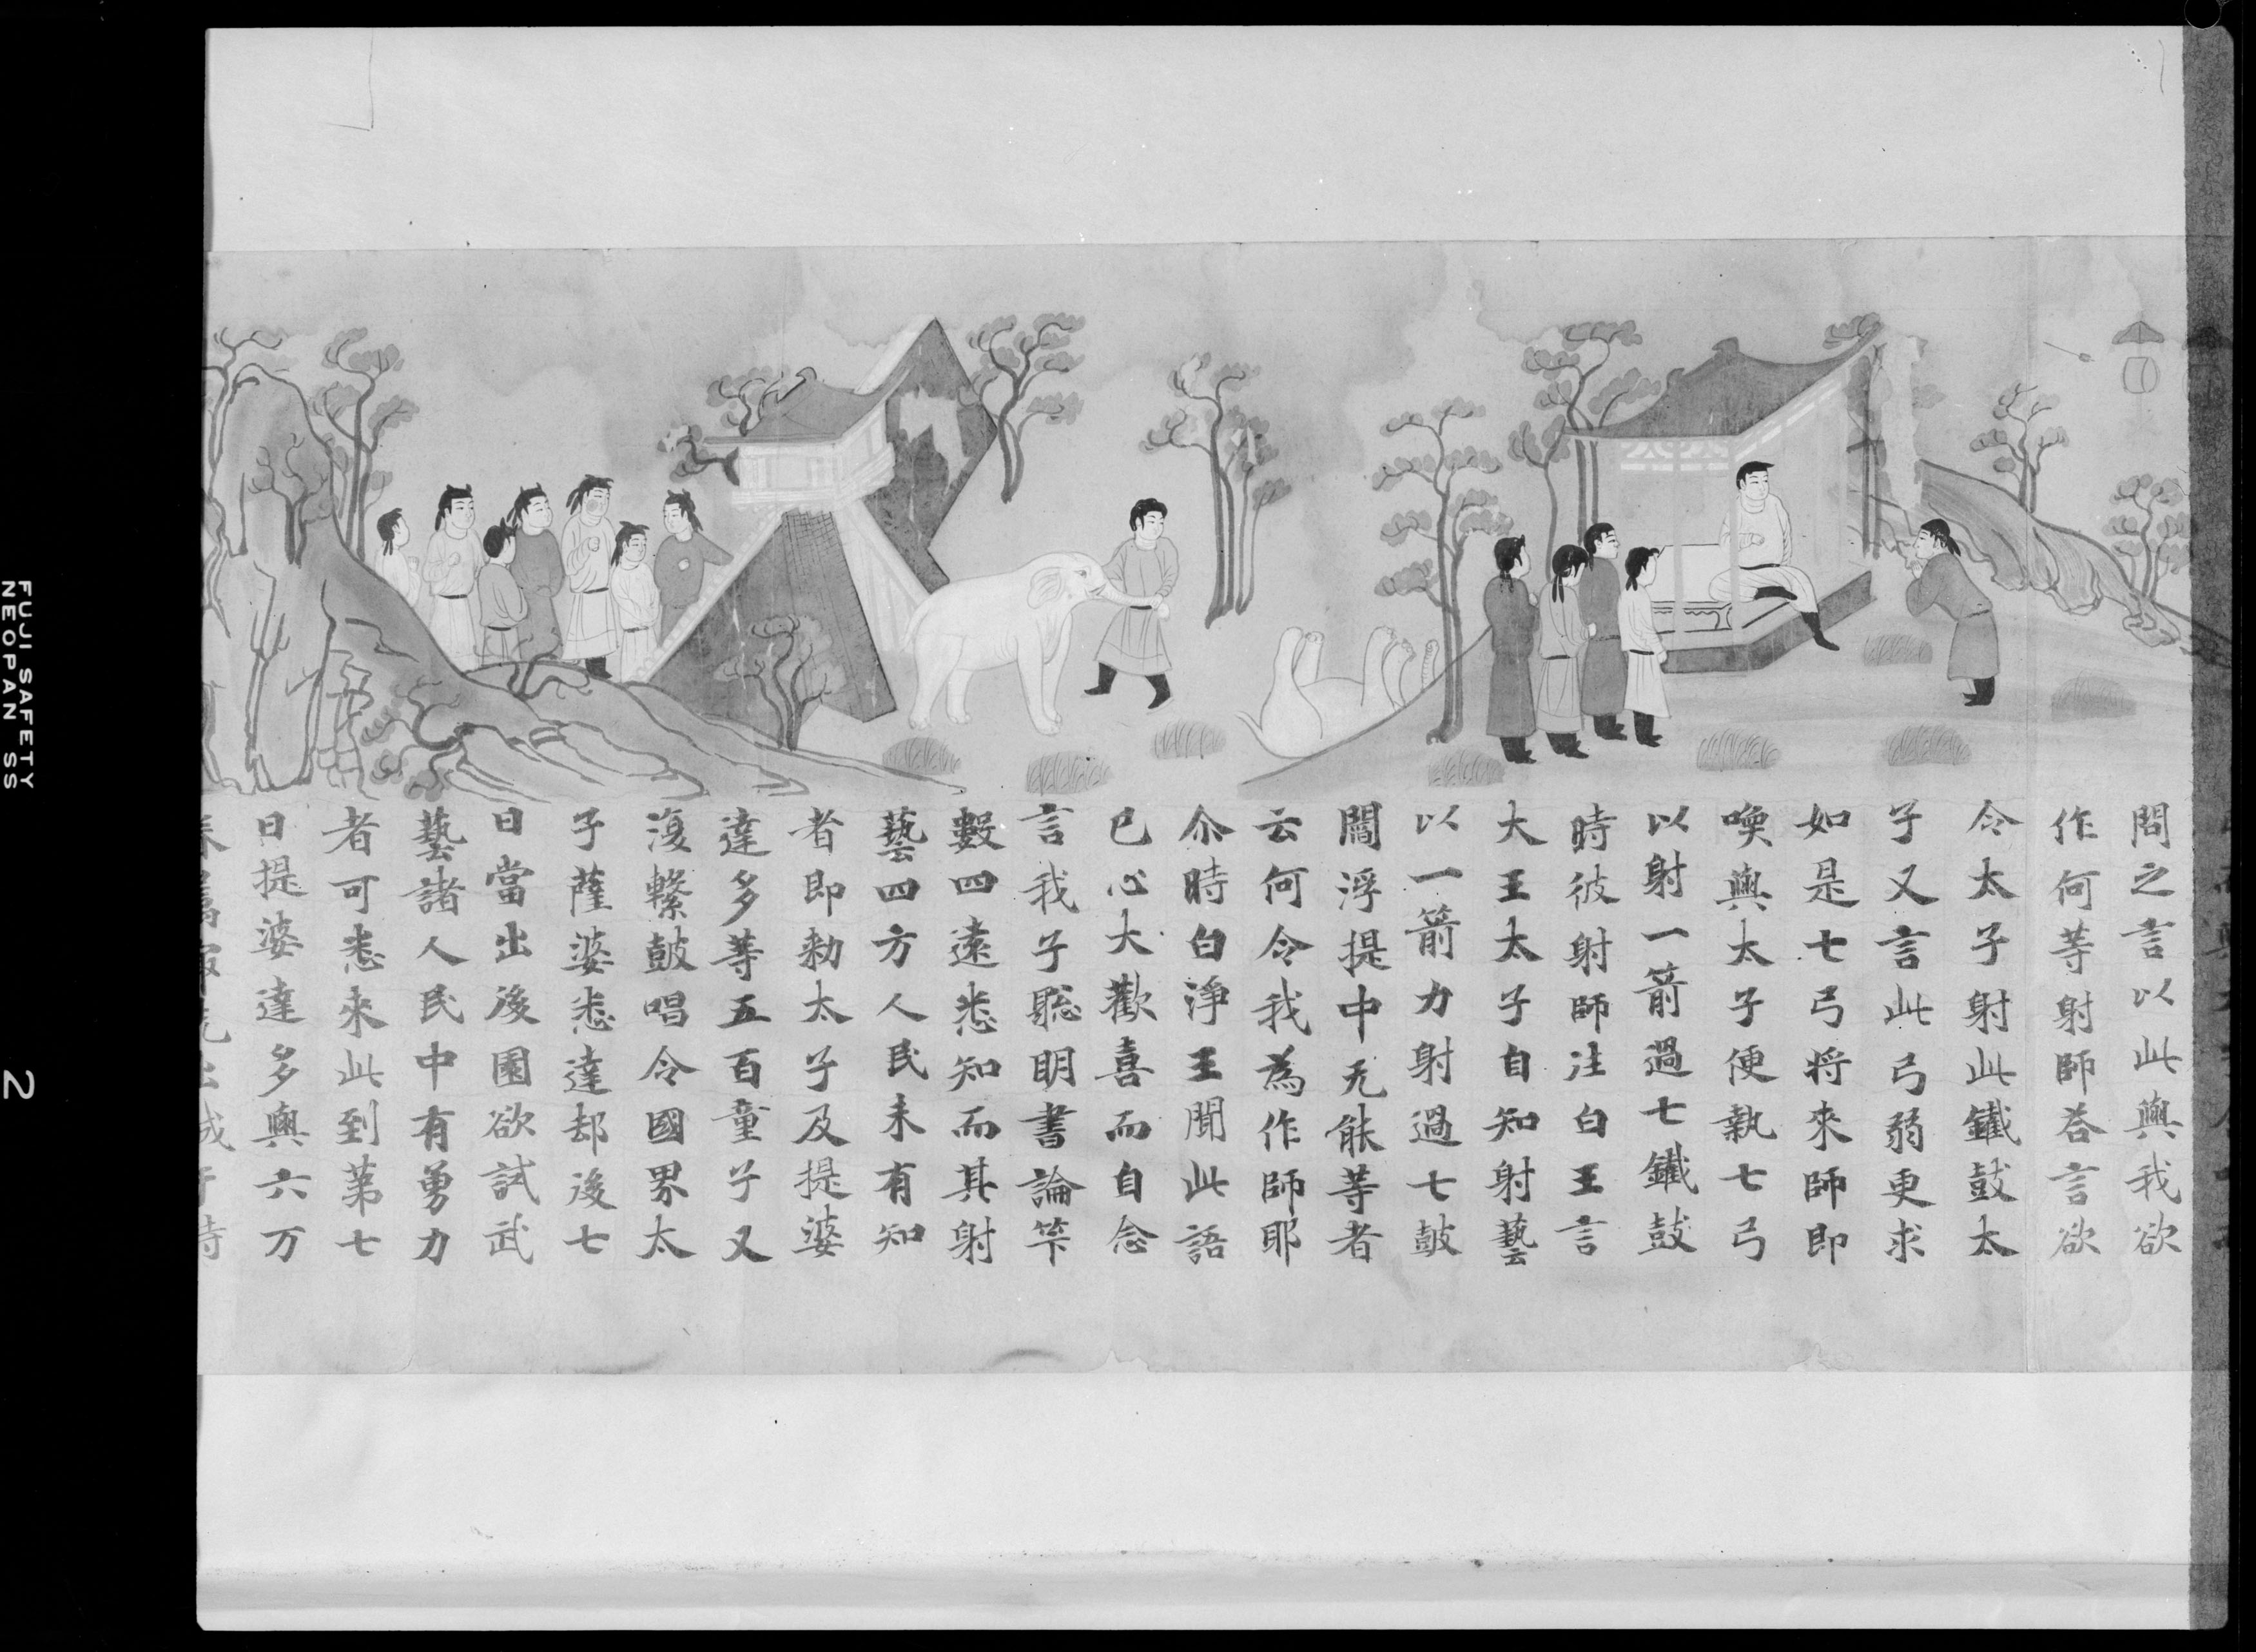 問之言以此與我欲
作何等射師荅言欲
令太子射此鐵鼓太
子又言此弓弱更求
如是七弓将來師即
喚與太子便執七弓
以射一箭過七鐵鼓
時彼射師泩白王言
大王太子自知射藝
以一箭力射過七鼓
閻浮提中无能等者
云何令我為作師耶
尒時白淨王聞此語
已心大歡喜而自念
言我子聡明書論竿
數四遠悉知而其射
藝四方人民未有知
者即勑太子及提婆
達多等五百童子又
復擊鼓唱令國界太
子薩婆悉達却後七
日當出後園欲試武
藝諸人民中有勇力
者可悉來此到苐七
日提婆達多與六万
FUJI SAFETY
NEOPAN SS
2